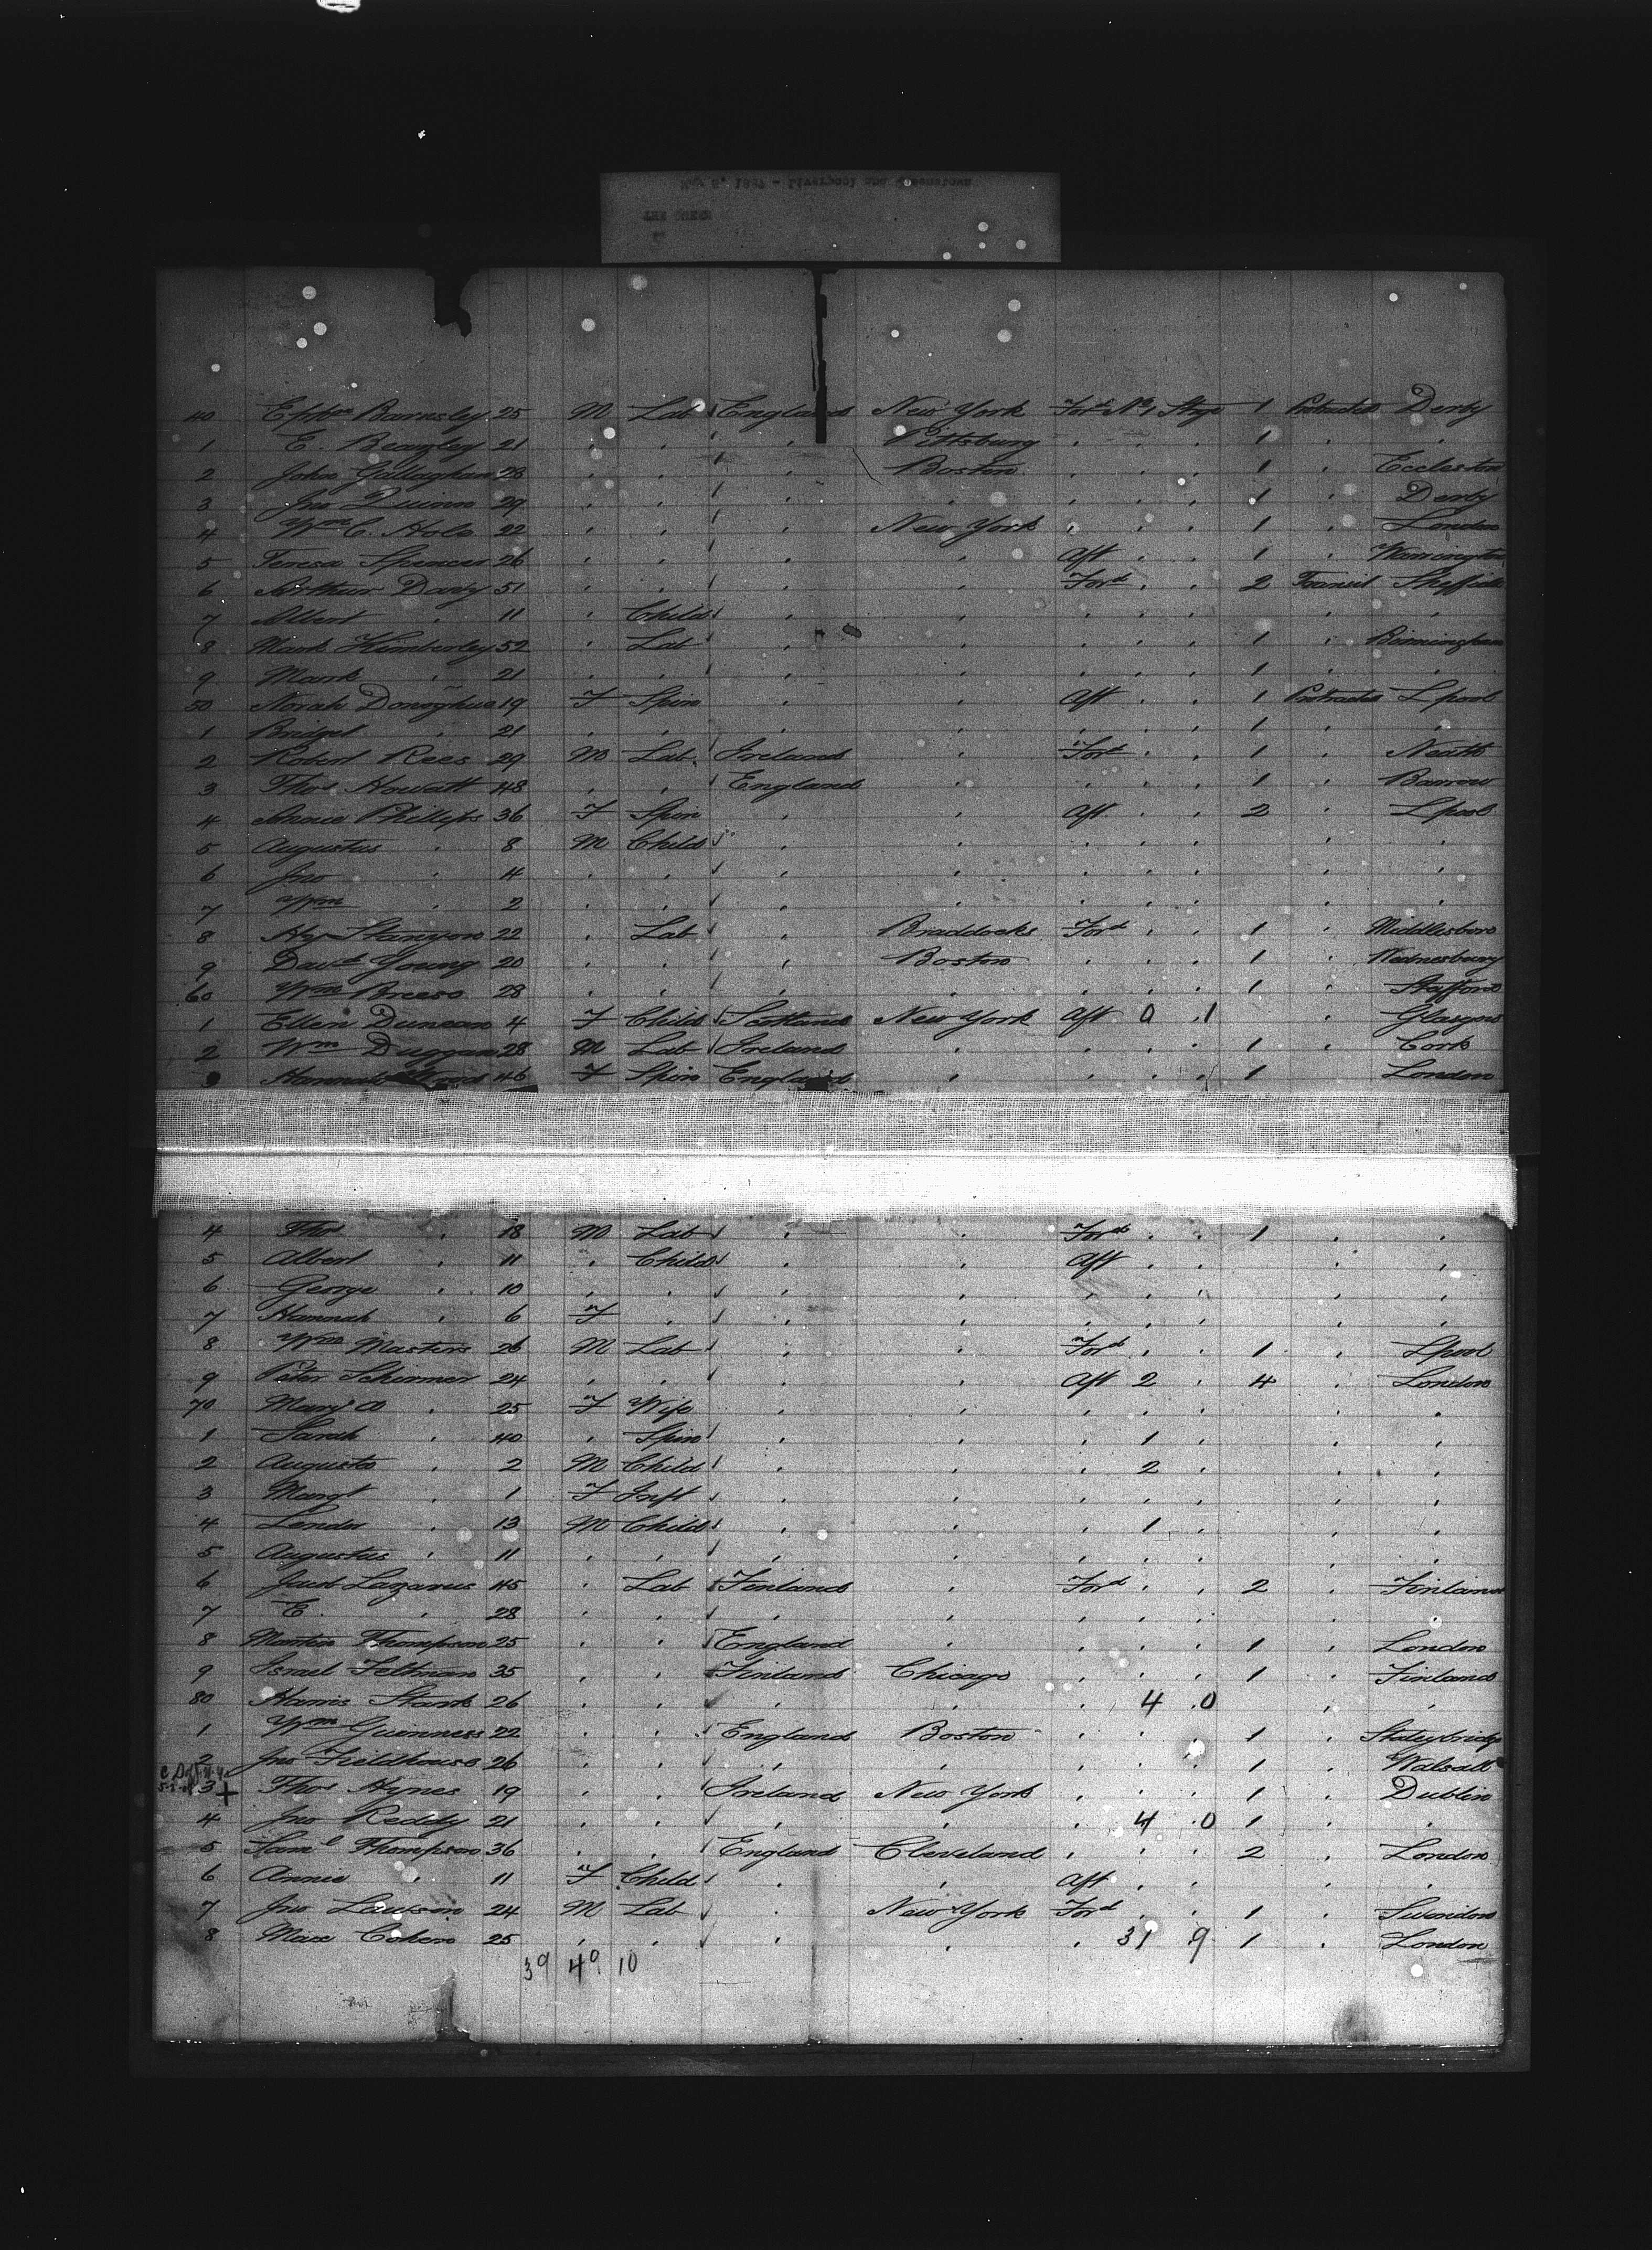 40 Ephm Barnsley 25 M Lab England New York Ford No 1 Stge 1 Protracted Derby
1 E. Beazley 21 " " " Pittsburg " " " 1 " "
2 John Gallaghan 28 " " " Boston " " " 1 " Eccleston
3 Jno Quinn 29 " " " " " " " 1 " Derby
4 Wm C. Hole 22 " " " New York " " " 1 " London
5 Teresa Spencer 26 " " " " Aft " " 1 " Warrington
6 Arthur Davy 51 " " " " Ford " " 2 Transit Sheffield
7 Albert " 11 " Child " " " " " " " "
8 Mark Kimberley 52 " Lab " " " " " 1 " Birmingham
9 Mark " 21 " " " " " " " 1 " "
50 Norah Donoghue 19 F Spin " " Aft " " 1 Protracted Lpool
1 Bridget " 21 " " " " " " " 1 " "
2 Robert Rees 29 M Lab Ireland " Ford " " 1 " Neath
3 Thos Howatt 48 " " England " " " " 1 " Barrow
4 Annie Phillips 36 F Spin " " Aft " " 2 " Lpool
5 Augustus " 8 M Child " " " " " " "
6 Jno " 4 " " " " " " " " "
7 Wm " 2 " " " " " " " " "
8 Hy Stanyon 22 " Lab " Braddocks Ford " " 1 " Middlesboro
9 Davd Young 20 " " " Boston " " " 1 " Wednesbury
60 Wm Breeso 28 " " " " " " " 1 " Stafford
1 Ellen Duncan 4 F Child Scotland New York Aft 0 1 " Glasgow
2 Wm Duggan 28 M Lab Ireland " " " " 1 " Cork
3 Hannah Ward 46 F Spin England " " " " 1 London
4 Thos " 18 M Lab " " Ford " " 1 " "
5 Albert " 11 " Child " " Aft " " " "
6 George " 10 " " " " " " " " "
7 Hannah " 6 F " " " " " " " "
8 Wm Masters 26 M Lab " " Ford " " 1 " Lpool
9 Peter Schirmer 24 " " " " Aft 2 " 4 " London
70 Mary A " 25 F Wife " " " " " " "
1 Sarah " 40 " Spin " " " 1 " " "
2 Augusta " 2 M Child " " " 2 " " "
3 Margt " 1 F Inft " " " " " " "
4 Lender " 13 M Child " " " 1 " " "
5 Augustus " 11 " " " " " " " " "
6 Jacb Lazarus 45 " Lab Finland " Ford " " 2 " Finland
7 E. " 28 " " " " " " " " "
8 Martin Thompson 25 " " England " " " " 1 " London
9 Israel Feltman 35 " " Finland Chicago " " " 1 " Finland
80 Harris Stark 26 " " " " " 4 0 " "
1 Wm Guinness 22 " " England Boston " " " 1 " Staleybridge
2 Jno Fieldhouse 26 " " " " " " " 1 " Walsall
3 + Thos Hynes 19 " " Ireland New York " " " 1 " Dublin
4 Jno Reddy 21 " " " " " 4 0 1 " "
5 Saml Thompson 36 " " England Cleveland " " " 2 " London
6 Annie " 11 F Child " " Aft " " " "
7 Jno Lawson 24 M Lab " New York Ford " " 1 " Swindon
8 Max Cohen 25 " " " " " 31 9 1 " London
39 49 10